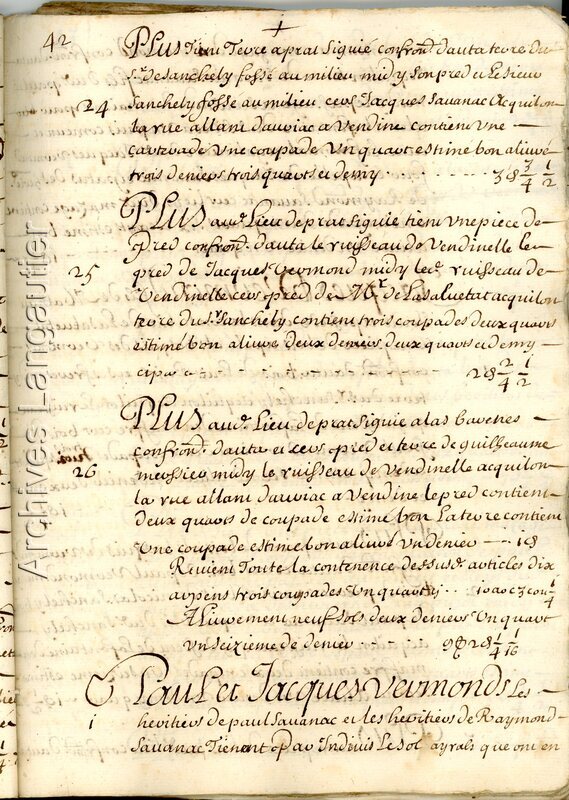 42
PLus Tient Terre a prat siguié confrond. dauta terre du
Sr. De sanchely fossé au milieu, midy son pred et Le sieur
24 sanchely fossé au milieu, cers Jacques savanac Acquilon
La rue allant dauriac a Vendine contient Une
carterade Une coupade Un quart estimé bon aliuré
trois deniers trois quarts et demy 3 8 3/4 1/2
PLUS aud. Lieu de prat Siguie tient Une piece de
pred confrond. dauta le ruisseau de Vendinelle le
25 pred de Jacques Vermond midy led. ruisseau de
Vendinelle cers pred de Mr. de Lasaluetat acquilon
terre du sr. sanchely contient trois coupades deux quarts
estimé bon aliuré deux deniers deux quarts et demy
2 8 2/4 1/2
PLUS aud. Lieu de prat Siguie a las
confrond. dauta et cers pred et terre de guilheaume
26 midy le ruisseau de Vendinelle acquilon
La rue allant dauriac a Vendine le pred contient
deux quarts de coupade estimé bon La terre contient
Une coupade estimé bon aliuré Un denier 1 8
Revient Toute la contenence dessusd. articles dix
arpens trois coupades Un quart 1/4
Aliurement neuf sols deux deniers Un quart
Un seizieme de denier 9 2 8 1/4 1/16
Paul et Jacques Vermonds Les
1 heritiers de paul Savanac et les heritiers de Raymond
Savanac Tienent Par Indivis Le sol ayrals que ont en
Archives Langautier